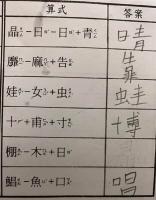 算式 答案
晶−日−日+青 晴
靡−麻+告 靠
娃−女+虫 蛙
十+甫+寸 博
棚−木+日
鯧−魚+口 唱